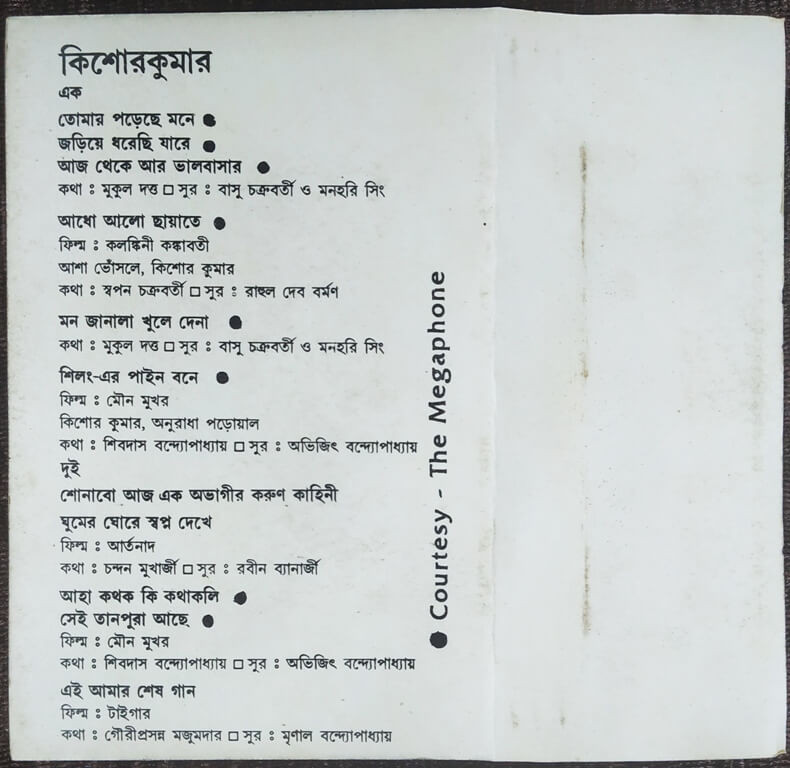 কিশোরকুমার
এক
তোমার পড়েছে মনে ●
জড়িয়ে ধরেছি যারে ●
আজ থেকে আর ভালবাসার ●
কথা : মুকুল দত্ত □ সুর : বাসু চক্রবর্তী ও মনহরি সিং
আধো আলো ছায়াতে ●
ফিল্ম : কলঙ্কিনী কঙ্কাবতী
আশা ভোঁসলে, কিশোর কুমার
কথা : স্বপন চক্রবর্তী □ সুর : রাহুল দেব বর্মণ
মন জানালা খুলে দেনা ●
কথা : মুকুল দত্ত □ সুর : বাসু চক্রবর্তী ও মনহরি সিং
শিলং-এর পাইন বনে ●
ফিল্ম : মৌন মুখর
কিশোর কুমার, অনুরাধা পড়োয়াল
কথা : শিবদাস বন্দ্যোপাধ্যায় □ সুর : অভিজিৎ বন্দ্যোপাধ্যায়
দুই
শোনাবো আজ এক অভাগীর করুণ কাহিনী
ঘুমের ঘোরে স্বপ্ন দেখে
ফিল্ম : আর্তনাদ
কথা : চন্দন মুখার্জী □ সুর : রবীন ব্যানার্জী
আহা কথক কি কথাকলি ●
সেই তানপুরা আছে ●
ফিল্ম : মৌন মুখর
কথা : শিবদাস বন্দ্যোপাধ্যায় □ সুর : অভিজিৎ বন্দ্যোপাধ্যায়
এই আমার শেষ গান
ফিল্ম : টাইগার
কথা : গৌরীপ্রসন্ন মজুমদার □ সুর : মৃণাল বন্দ্যোপাধ্যায়
● Courtesy - The Megaphone